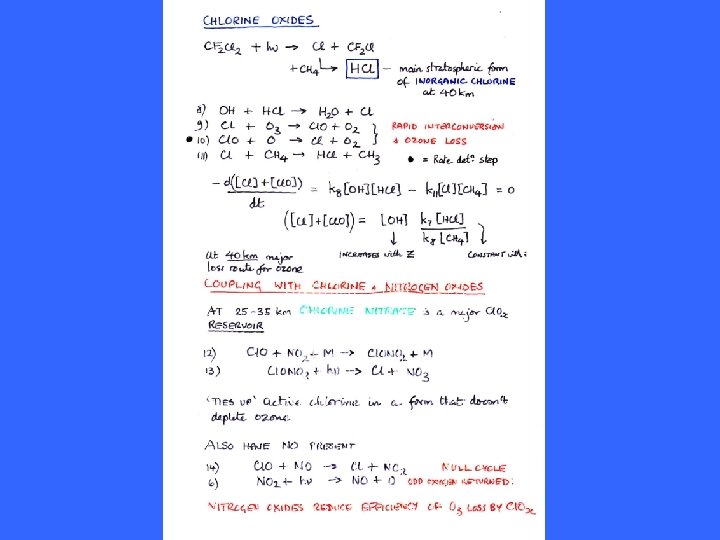 CHLORINE OXIDES.
CF₂Cl₂ + hν → Cl + CF₂Cl
+CH₄ → HCl – main stratospheric form
of INORGANIC CHLORINE
at 40km
8) OH + HCl → H₂O + Cl
9) Cl + O₃ → ClO + O₂ } RAPID INTERCONVERSION
• 10) ClO + O → Cl + O₂ } & OZONE LOSS
(11) Cl + CH₄ → HCl + CH₃ • = Rate detⁿ step
− d([Cl]+[ClO]) / dt = k₈[OH][HCl] − k₁₁[Cl][CH₄] = 0
([Cl]+[ClO]) = [OH] k₇[HCl] / k₈[CH₄]
↓ INCREASES with Z ↓ CONSTANT with
at 40km major
loss route for ozone
COUPLING WITH CHLORINE & NITROGEN OXIDES
AT 25-35 km CHLORINE NITRATE is a major ClOx
RESERVOIR
12) ClO + NO₂ + M → ClONO₂ + M
13) ClONO₂ + hν → Cl + NO₃
'TIES UP' active chlorine in a form that doesn't
deplete ozone
ALSO HAVE NO PRESENT
14) ClO + NO → Cl + NO₂ NULL CYCLE
6) NO₂ + hν → NO + O ODD OXYGEN RETURNED.
NITROGEN OXIDES REDUCE EFFICIENCY OF O₃ LOSS BY ClOx